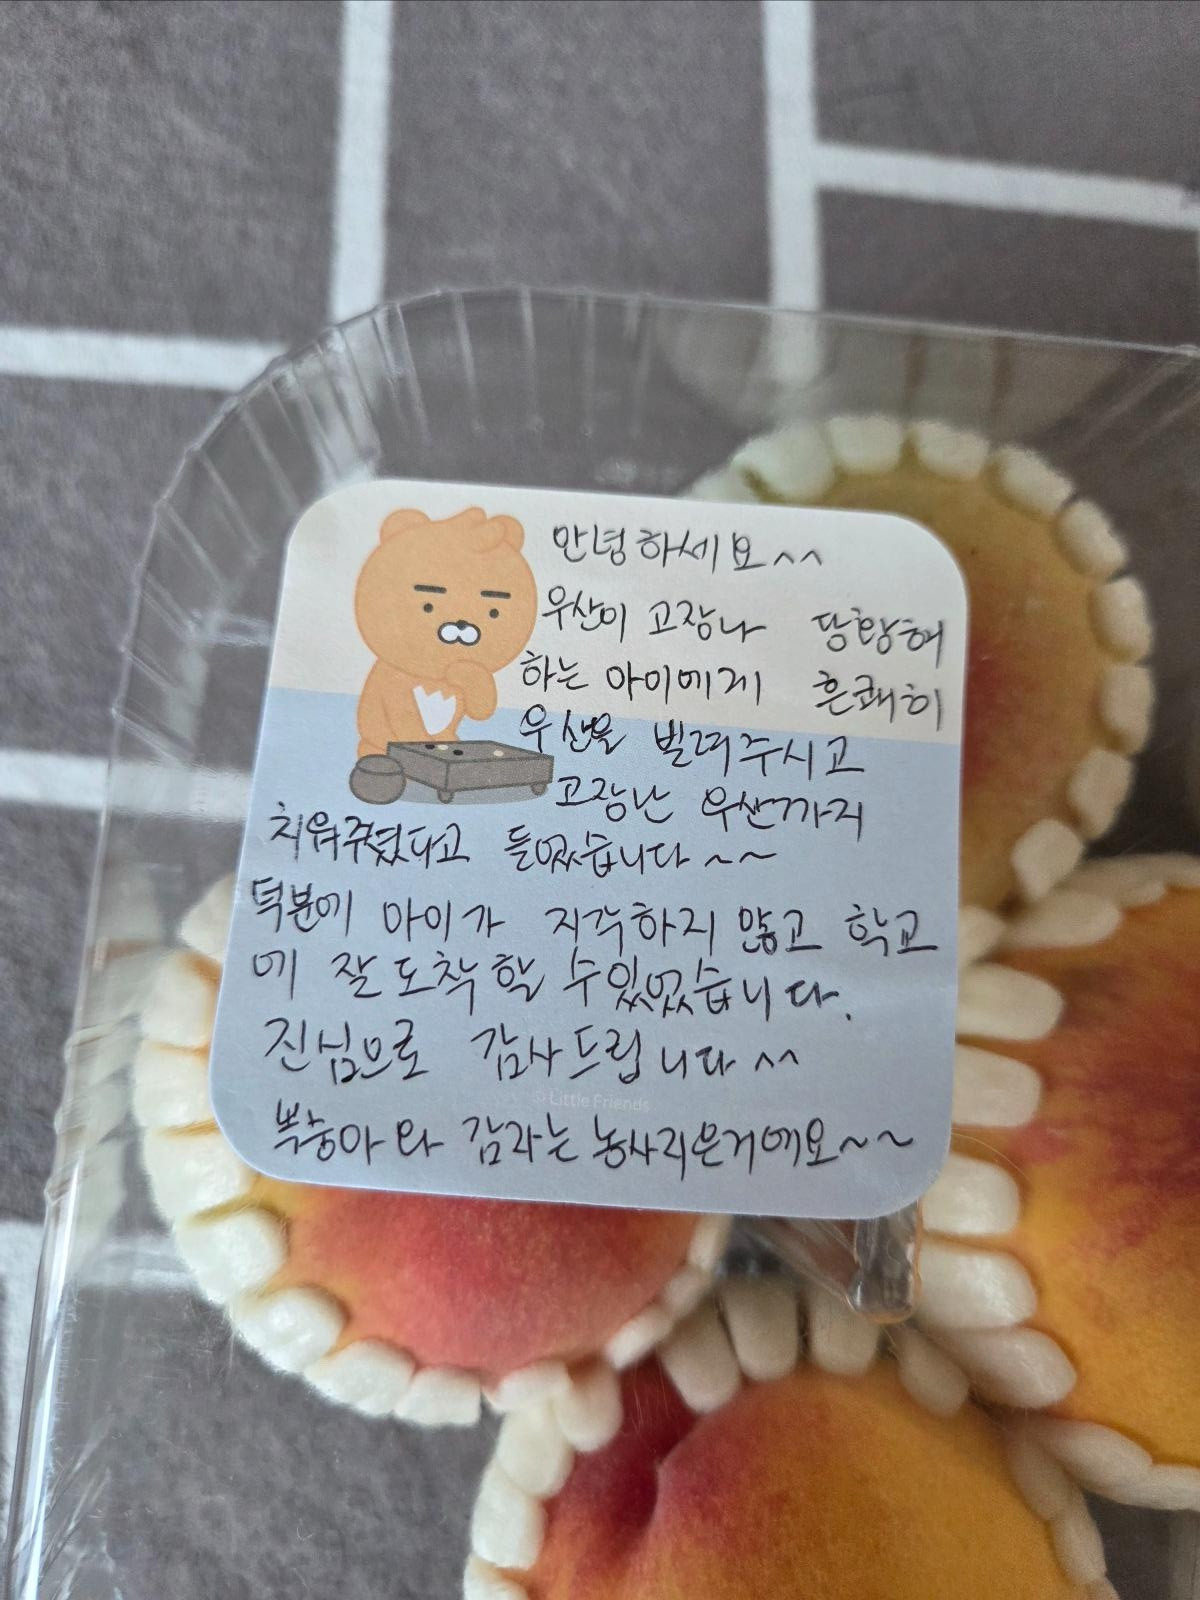 안녕하세요^^
우산이 고장나 당황해
하는 아이에게 흔쾌히
우산을 빌려주시고
고장난 우산까지
치워주셨다고 들었습니다~~
덕분에 아이가 지각하지 않고 학교
에 잘 도착할 수있었습니다.
진심으로 감사드립니다^^
© Little Friends
복숭아와 감자는 농사지은거예요~~